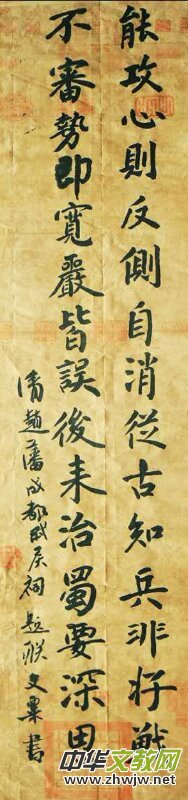 能攻心則反側自消從古知兵非好戰
不審勢即寬嚴皆誤後來治蜀要深思
清趙藩成都武侯祠題聯文票書
中华文教网
www.zhwjw.net